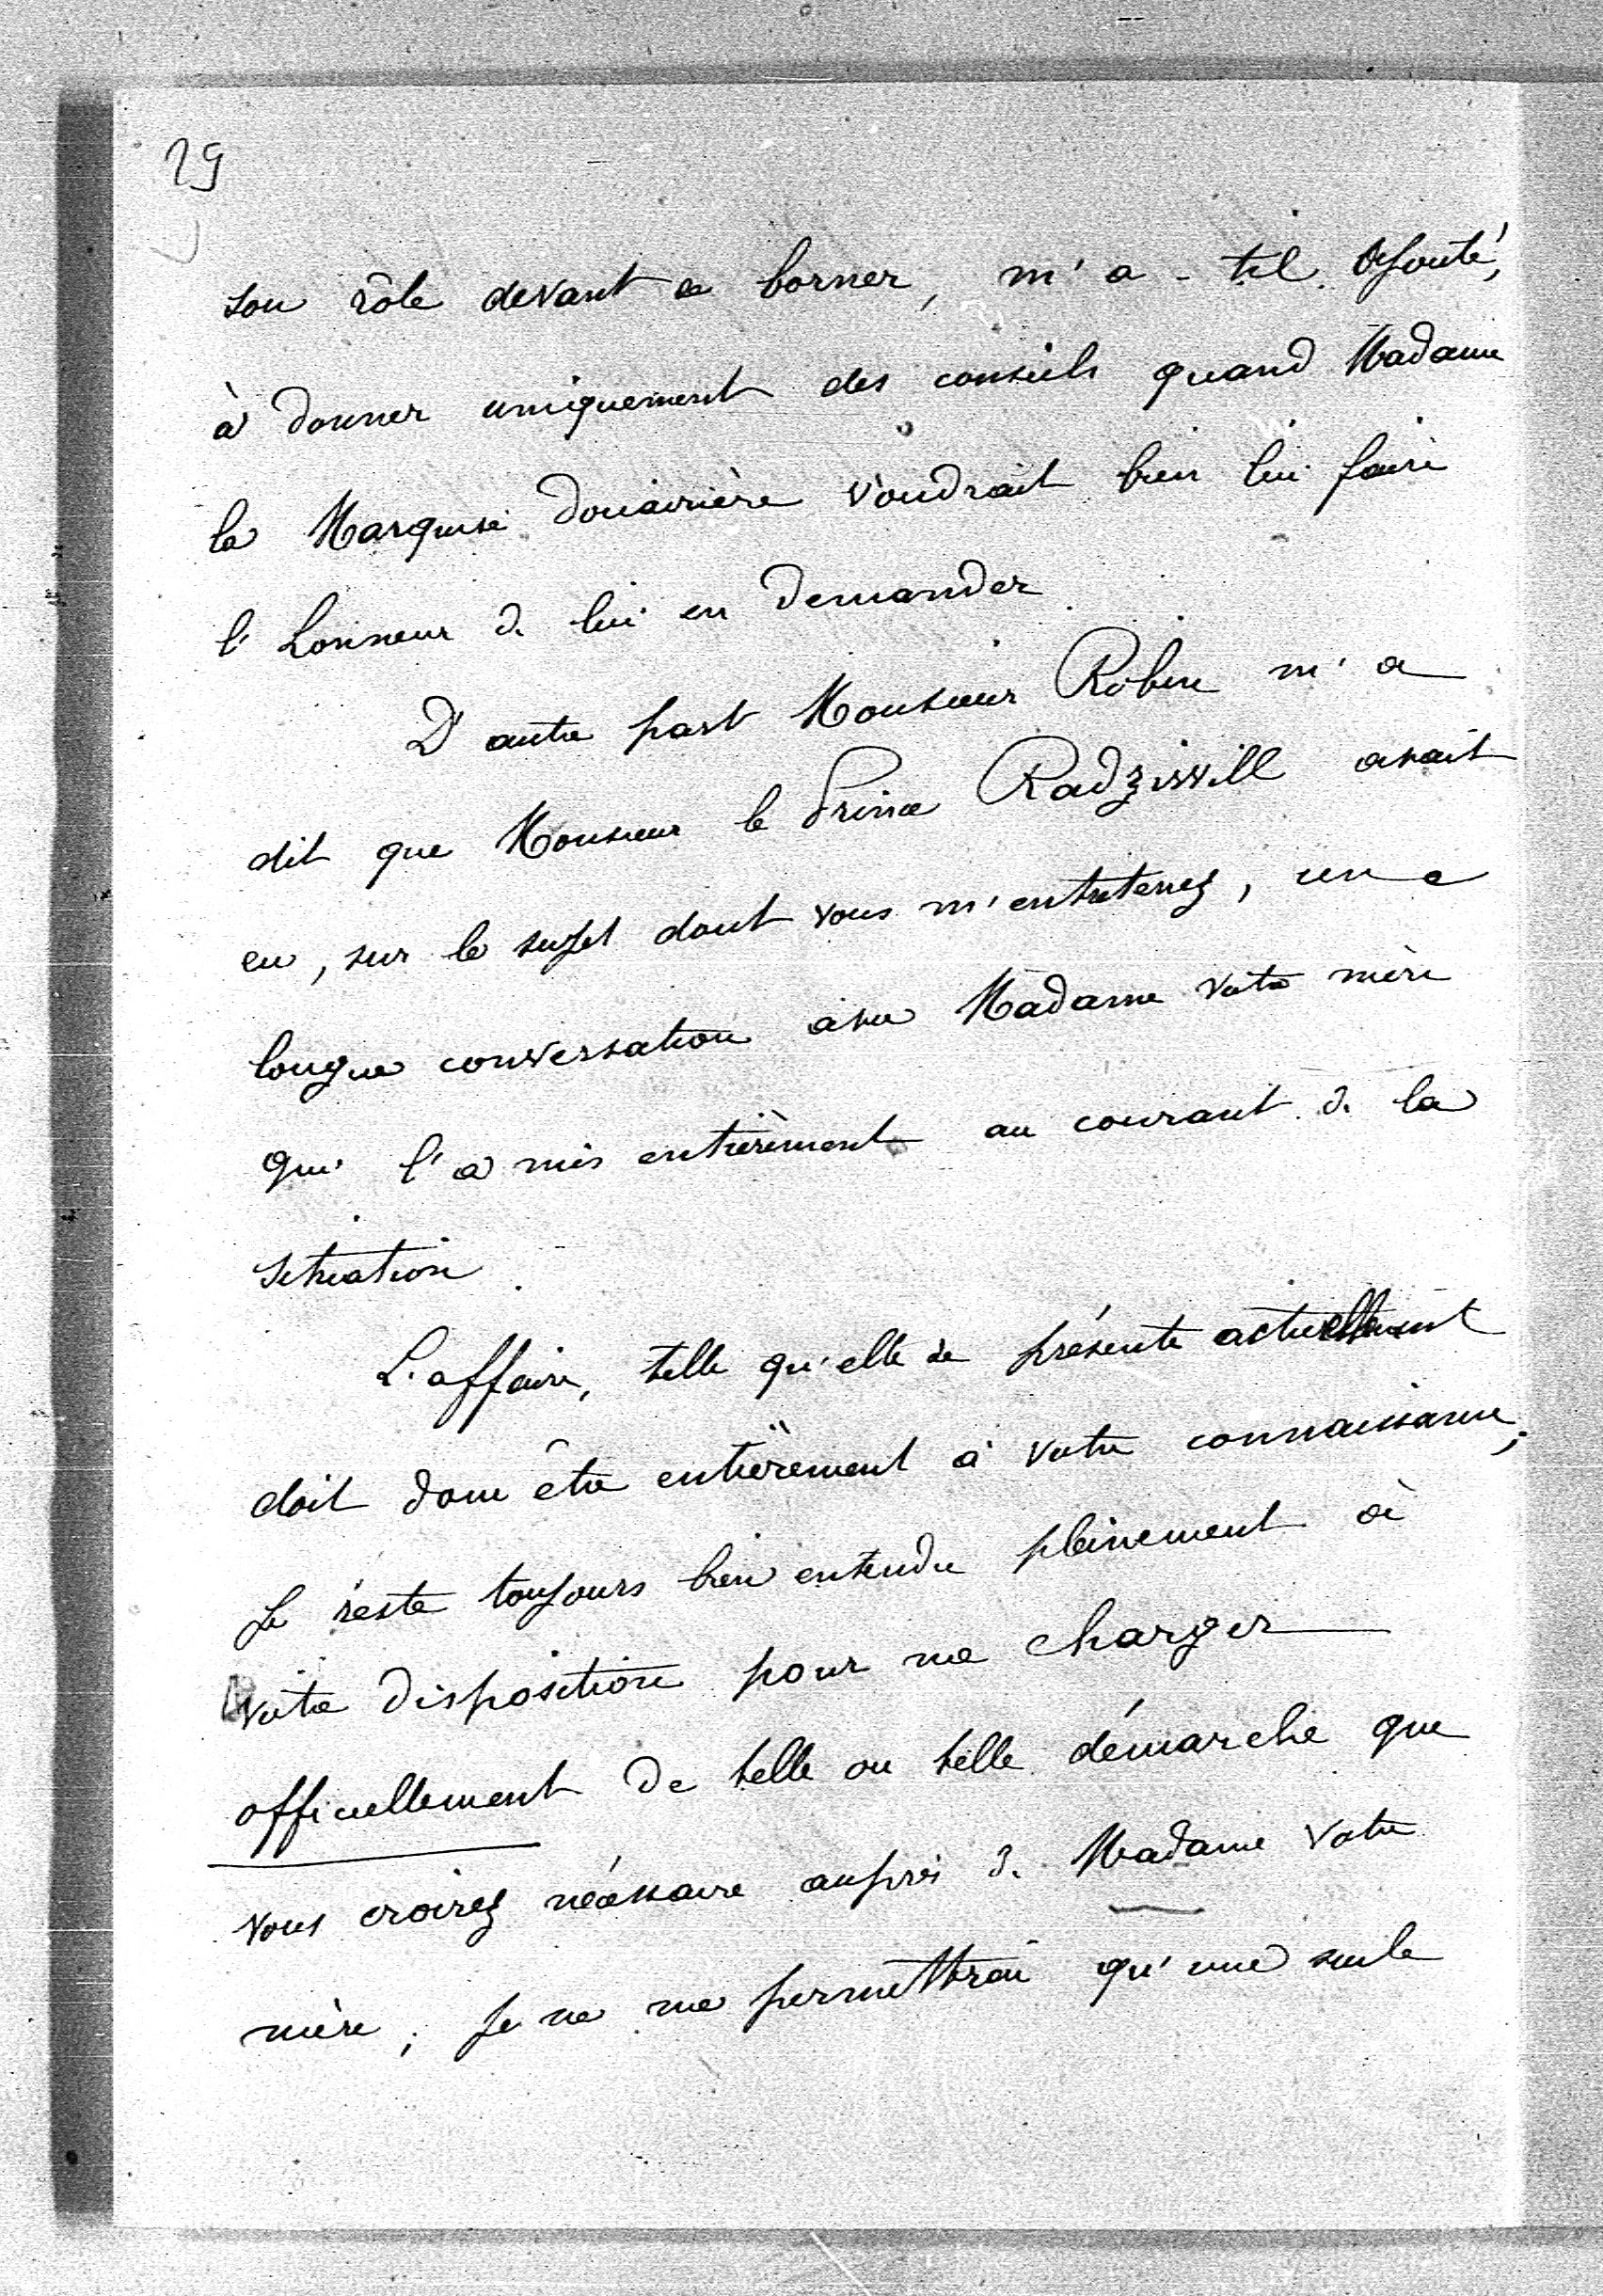 29
son rôle devant se borner, m'a-t-il ajouté,
à donner uniquement des conseils quand Madame
la Marquise douairière voudrait bien lui faire
l'honneur de lui en demander.
D'autre part Monsieur Robin m'a
dit que Monsieur le Prince Radziwill avait
eu, sur le sujet dont vous m'entretenez, une
longue conversation avec Madame votre mère
qui l'a mis entièrement au courant de la
situation.
L'affaire, telle qu'elle se présente actuellement
doit donc être entièrement à votre connaissance;
Je reste toujours bien entendu pleinement à
votre disposition pour me charger
officiellement de telle ou telle démarche que
vous croirez nécessaire auprès de Madame votre
mère; je ne me permettrai qu'une seule